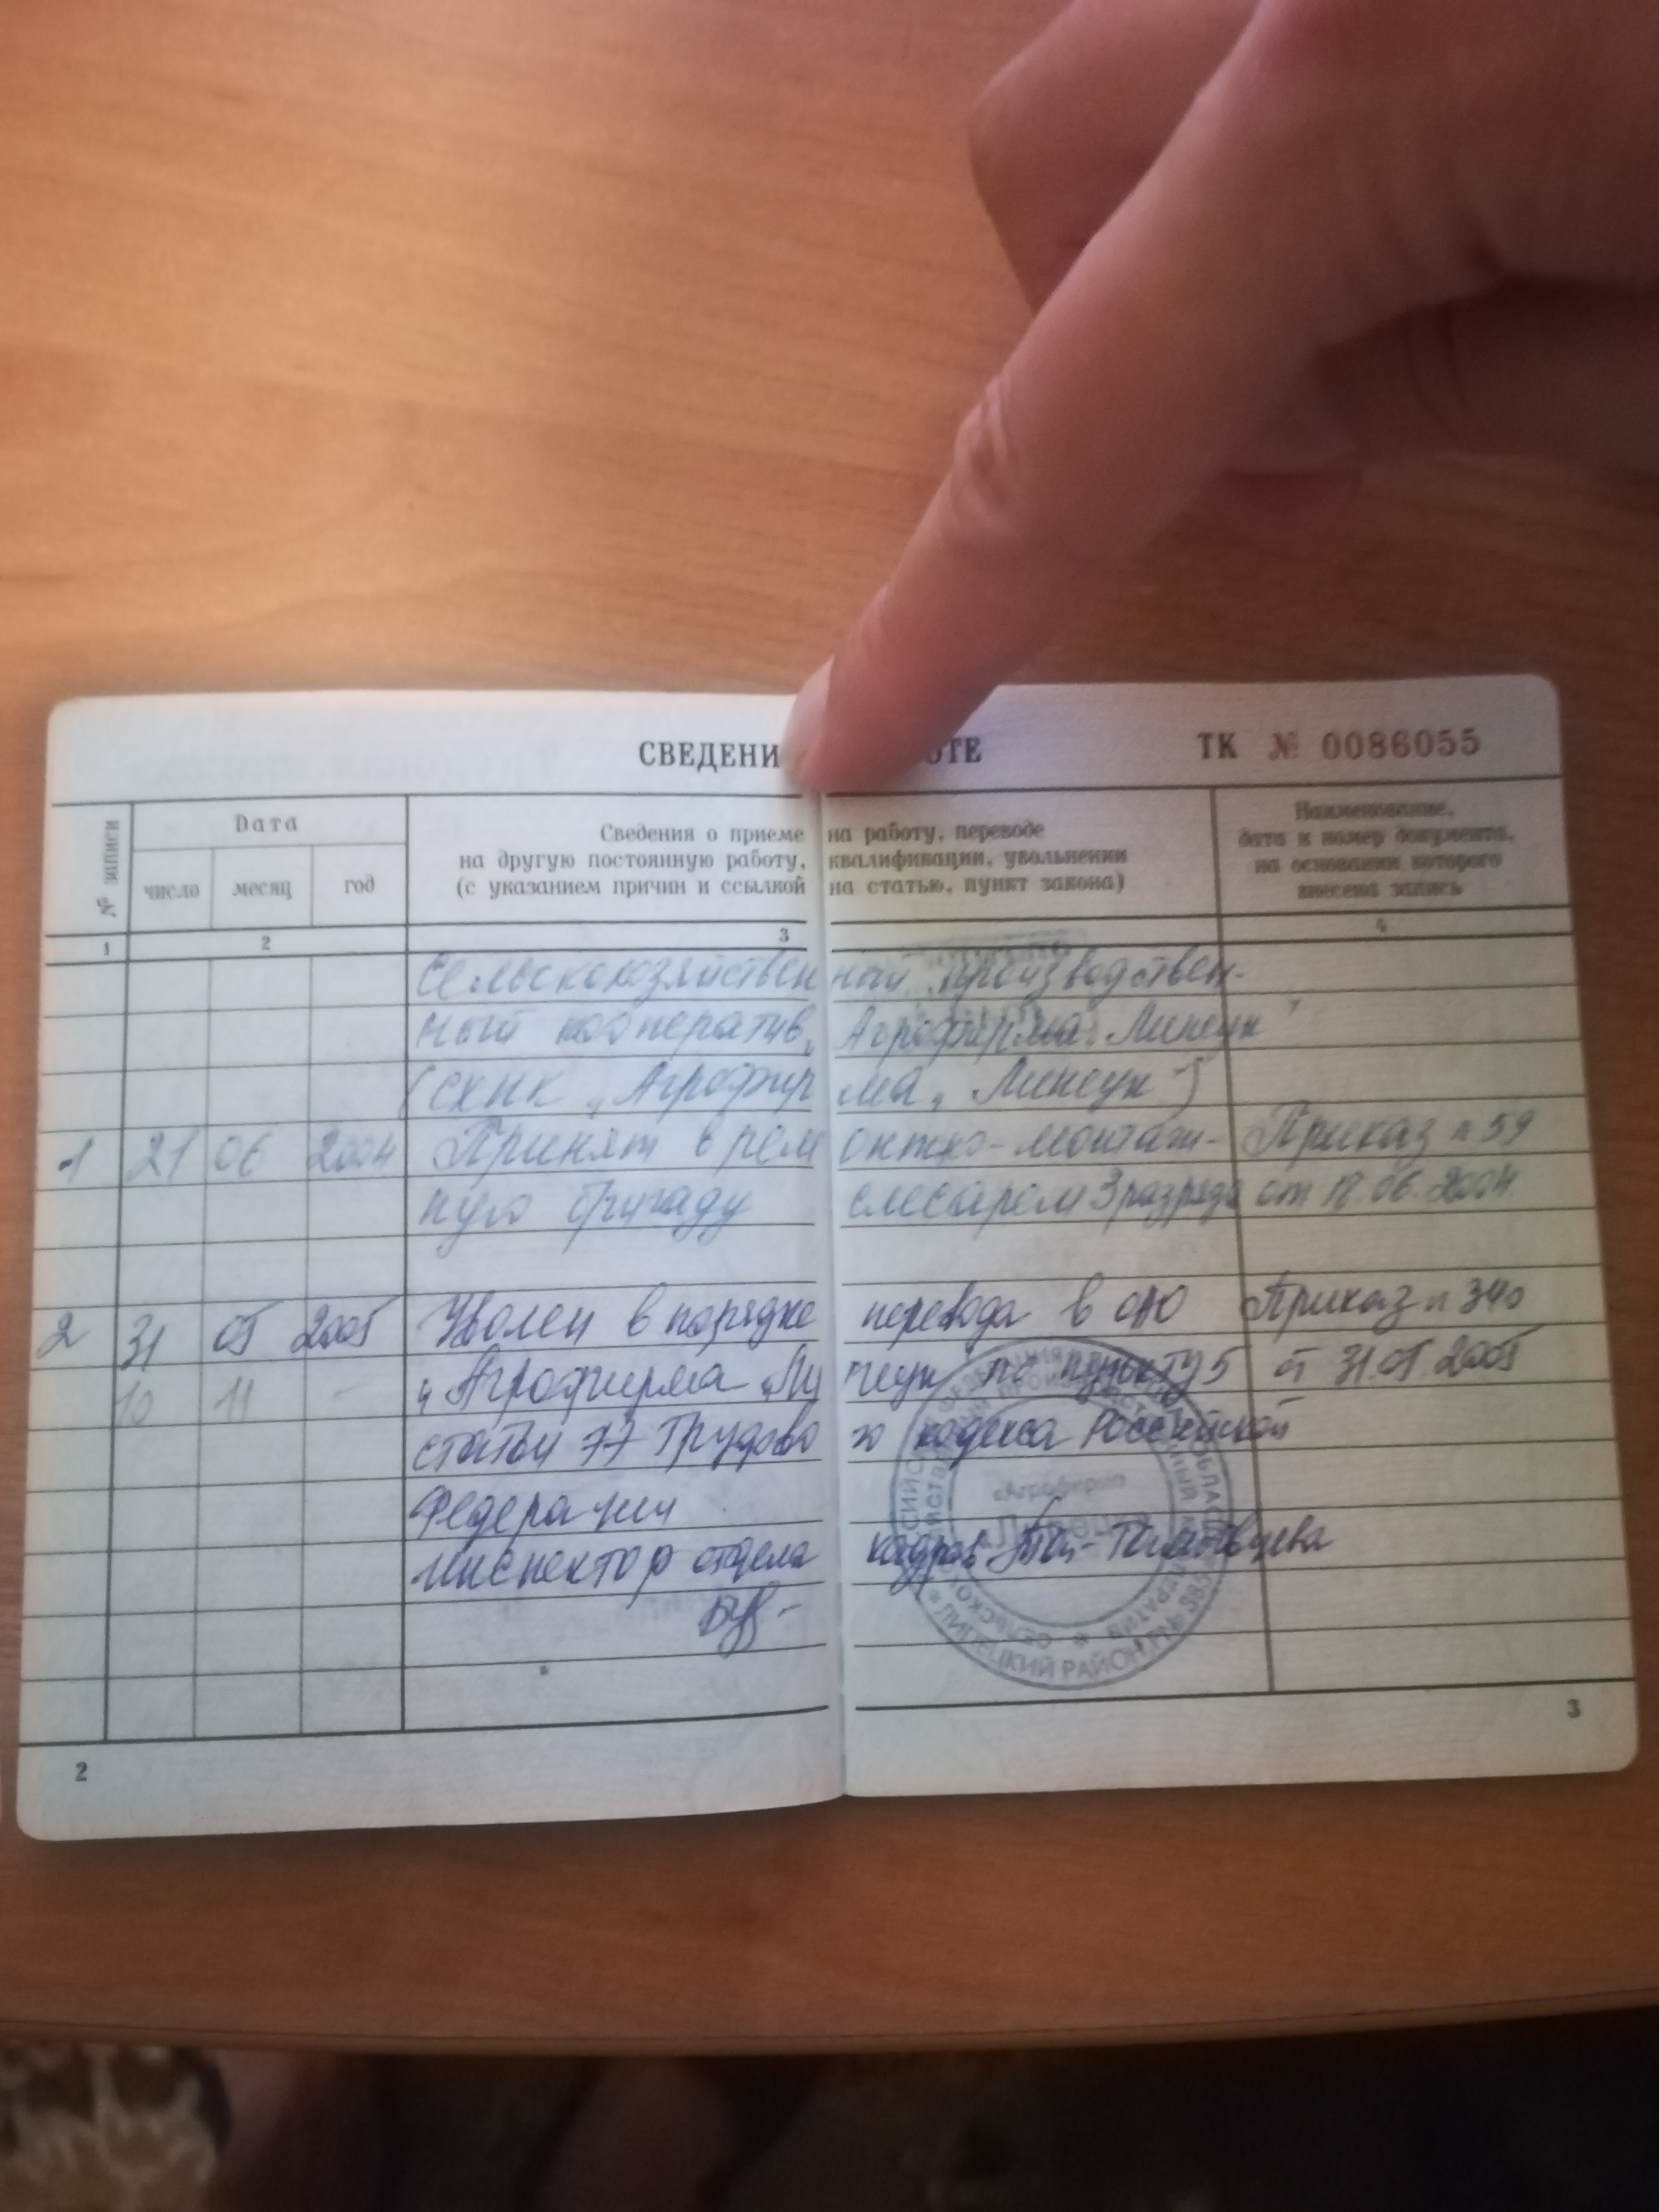 СВЕДЕНИ ОТЕ
ТК № 0086055
№ записи
Дата
число месяц год
Сведения о приеме на работу, переводе
на другую постоянную работу, квалификации, увольнении
(с указанием причин и ссылкой на статью, пункт закона)
Наименование,
дата и номер документа,
на основании которого
внесена запись
1 2 3 4
Сельскохозяйственный производствен-
ный кооператив „Агрофирма Липецк"
(СХПК „Агрофирма „Липецк")
1 21 06 2004 Принят в ремонтно-монтаж- Приказ n 59
ную бригаду слесарем 3 разряда от 18.06.2004
2 31 05 2005 Уволен в порядке перевода в ОАО Приказ n 340
10 11 - „Агрофирма „Липецк по пункту 5 от 31.05.2005
статьи 77 Трудового кодекса Российской
Федерации
Инспектор отдела кадров
«Агрофирма
Липецк
ЛИПЕЦКИЙ РАЙОН
2
3